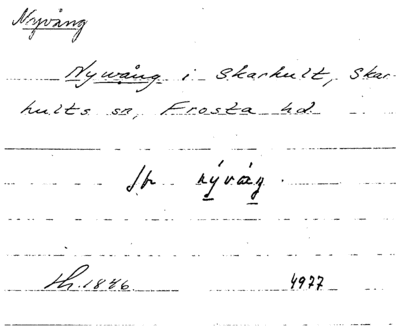 Nyvång
Nywång i Skarhult, Skar-
hults sn, Frosta hd
nýván̲g.
1886 4977